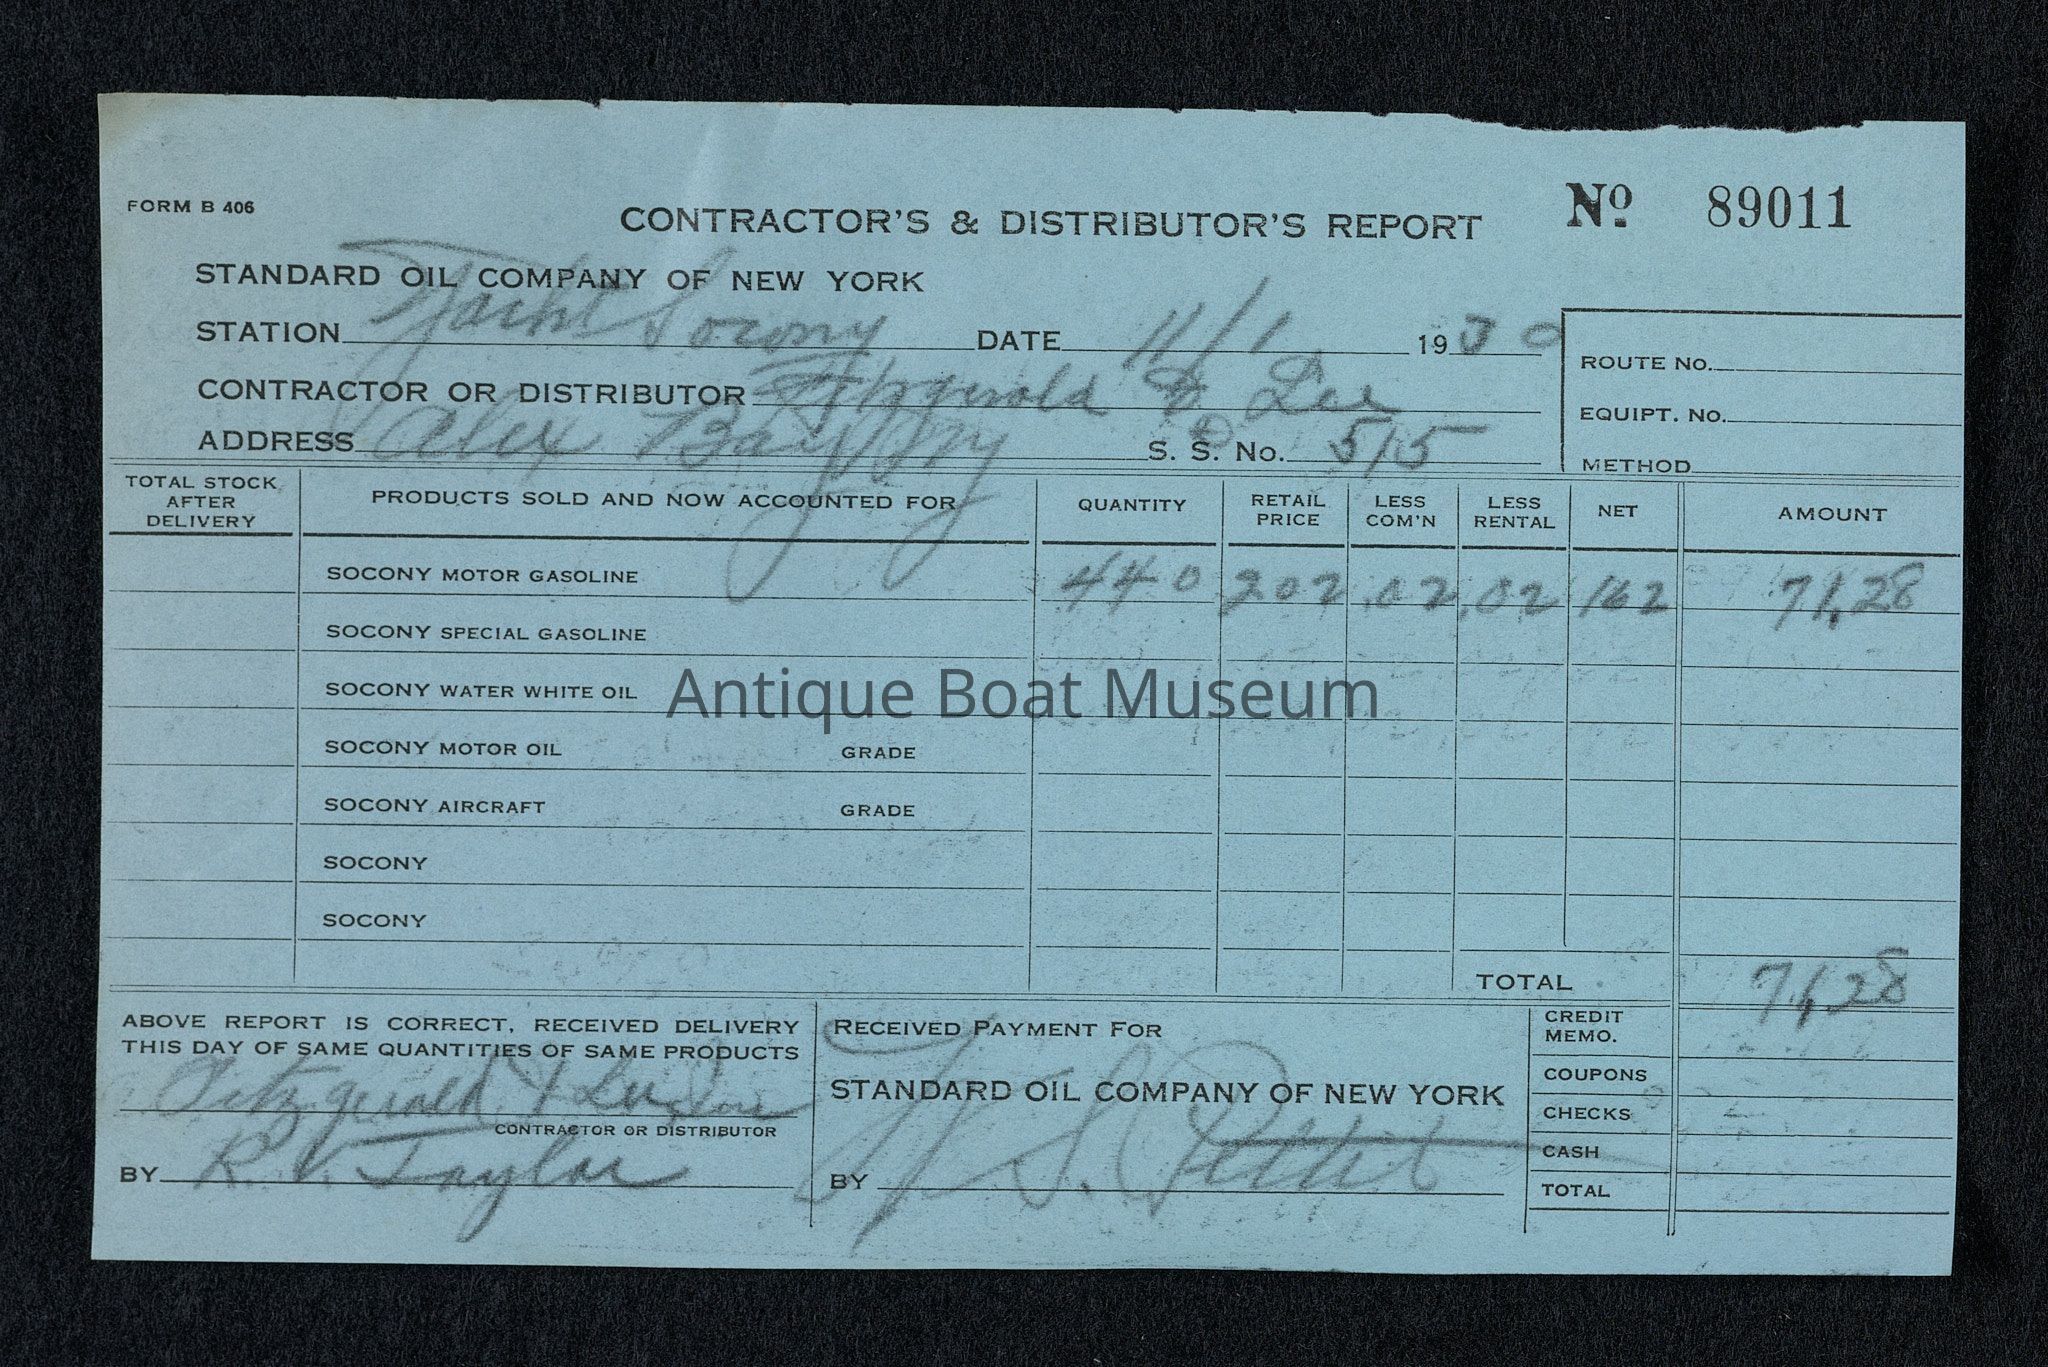 FORM B 406
CONTRACTOR'S & DISTRIBUTOR'S REPORT
Nº 89011
STANDARD OIL COMPANY OF NEW YORK
STATION Yacht Socony DATE 11/1 1930
ROUTE No.
CONTRACTOR OR DISTRIBUTOR Fitzgerald & Lee
EQUIPT. No.
ADDRESS Alex Bay NY S. S. No. 515
METHOD
TOTAL STOCK AFTER DELIVERY PRODUCTS SOLD AND NOW ACCOUNTED FOR QUANTITY RETAIL PRICE LESS COM'N LESS RENTAL NET AMOUNT
SOCONY MOTOR GASOLINE 440 202 .02 .02 162 71.28
SOCONY SPECIAL GASOLINE
SOCONY WATER WHITE OIL
Antique Boat Museum
SOCONY MOTOR OIL GRADE
SOCONY AIRCRAFT GRADE
SOCONY
SOCONY
TOTAL 71.28
ABOVE REPORT IS CORRECT, RECEIVED DELIVERY
THIS DAY OF SAME QUANTITIES OF SAME PRODUCTS
Fitzgerald & Lee
CONTRACTOR OR DISTRIBUTOR
BY R. V. Taylor
RECEIVED PAYMENT FOR
STANDARD OIL COMPANY OF NEW YORK
BY
CREDIT MEMO.
COUPONS
CHECKS
CASH
TOTAL